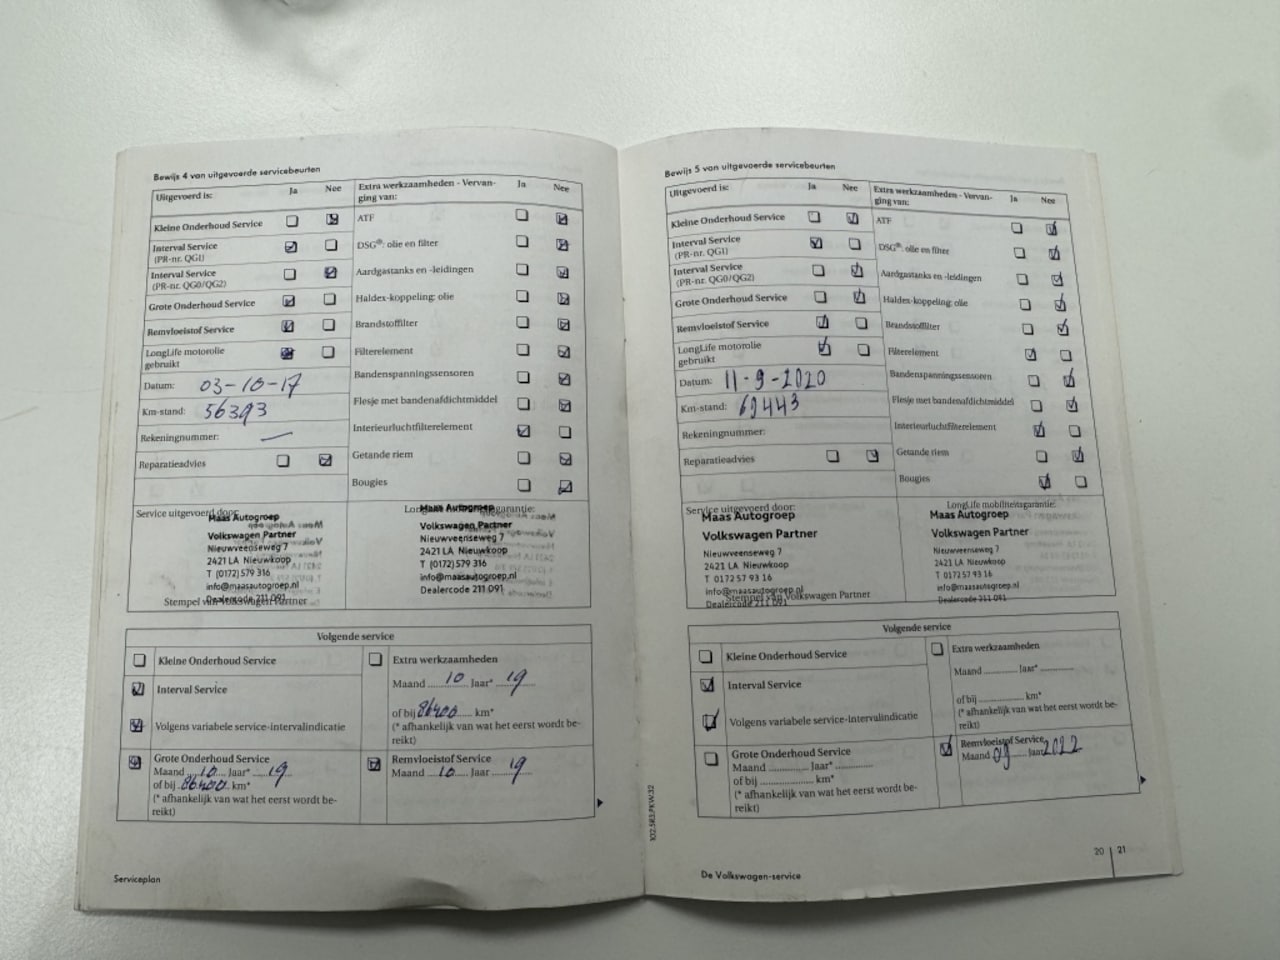 Bewijs 4 van uitgevoerde servicebeurten
Uitgevoerd is: Ja Nee
Kleine Onderhoud Service
Interval Service
(PR-nr. QG1)
Interval Service
(PR-nr. QG0/QG2)
Grote Onderhoud Service
Remvloeistof Service
LongLife motorolie
gebruikt
Datum: 03-10-17
Km-stand: 56393
Rekeningnummer: —
Reparatieadvies
Extra werkzaamheden - Vervan-
ging van: Ja Nee
ATF
DSG®: olie en filter
Aardgastanks en -leidingen
Haldex-koppeling: olie
Brandstoffilter
Filterelement
Bandenspanningssensoren
Flesje met bandenafdichtmiddel
Interieurluchtfilterelement
Getande riem
Bougies
Service uitgevoerd door:
Maas Autogroep
Volkswagen Partner
Nieuwveenseweg 7
2421 LA Nieuwkoop
T (0172) 579 316
info@maasautogroep.nl
Dealercode 211 091
Stempel van Volkswagen Partner
Maas Autogroep
Volkswagen Partner
Nieuwveenseweg 7
2421 LA Nieuwkoop
T (0172) 579 316
info@maasautogroep.nl
Dealercode 211 091
Volgende service
Kleine Onderhoud Service
Interval Service
Volgens variabele service-intervalindicatie
Grote Onderhoud Service
Maand 10 Jaar* 19
of bij 86400 km*
(* afhankelijk van wat het eerst wordt be-
reikt)
Extra werkzaamheden
Maand 10 Jaar* 19
of bij 86400 km*
(* afhankelijk van wat het eerst wordt be-
reikt)
Remvloeistof Service
Maand 10 Jaar 19
Serviceplan
Bewijs 5 van uitgevoerde servicebeurten
Uitgevoerd is: Ja Nee
Kleine Onderhoud Service
Interval Service
(PR-nr. QG1)
Interval Service
(PR-nr. QG0/QG2)
Grote Onderhoud Service
Remvloeistof Service
LongLife motorolie
gebruikt
Datum: 11-9-2020
Km-stand: 69443
Rekeningnummer:
Reparatieadvies
Extra werkzaamheden - Vervan-
ging van: Ja Nee
ATF
DSG®: olie en filter
Aardgastanks en -leidingen
Haldex-koppeling: olie
Brandstoffilter
Filterelement
Bandenspanningssensoren
Flesje met bandenafdichtmiddel
Interieurluchtfilterelement
Getande riem
Bougies
Service uitgevoerd door:
Maas Autogroep
Volkswagen Partner
Nieuwveenseweg 7
2421 LA Nieuwkoop
T 0172 57 93 16
info@maasautogroep.nl
Dealercode 211 091
Stempel van Volkswagen Partner
LongLife mobiliteitsgarantie:
Maas Autogroep
Volkswagen Partner
Nieuwveenseweg 7
2421 LA Nieuwkoop
T 0172 57 93 16
info@maasautogroep.nl
Dealercode 211 091
Volgende service
Kleine Onderhoud Service
Interval Service
Volgens variabele service-intervalindicatie
Grote Onderhoud Service
Maand Jaar*
of bij km*
(* afhankelijk van wat het eerst wordt be-
reikt)
Extra werkzaamheden
Maand Jaar*
of bij km*
(* afhankelijk van wat het eerst wordt be-
reikt)
Remvloeistof Service
Maand 09 Jaar 2022
102.5R3.PKW.32
De Volkswagen-service
20 | 21